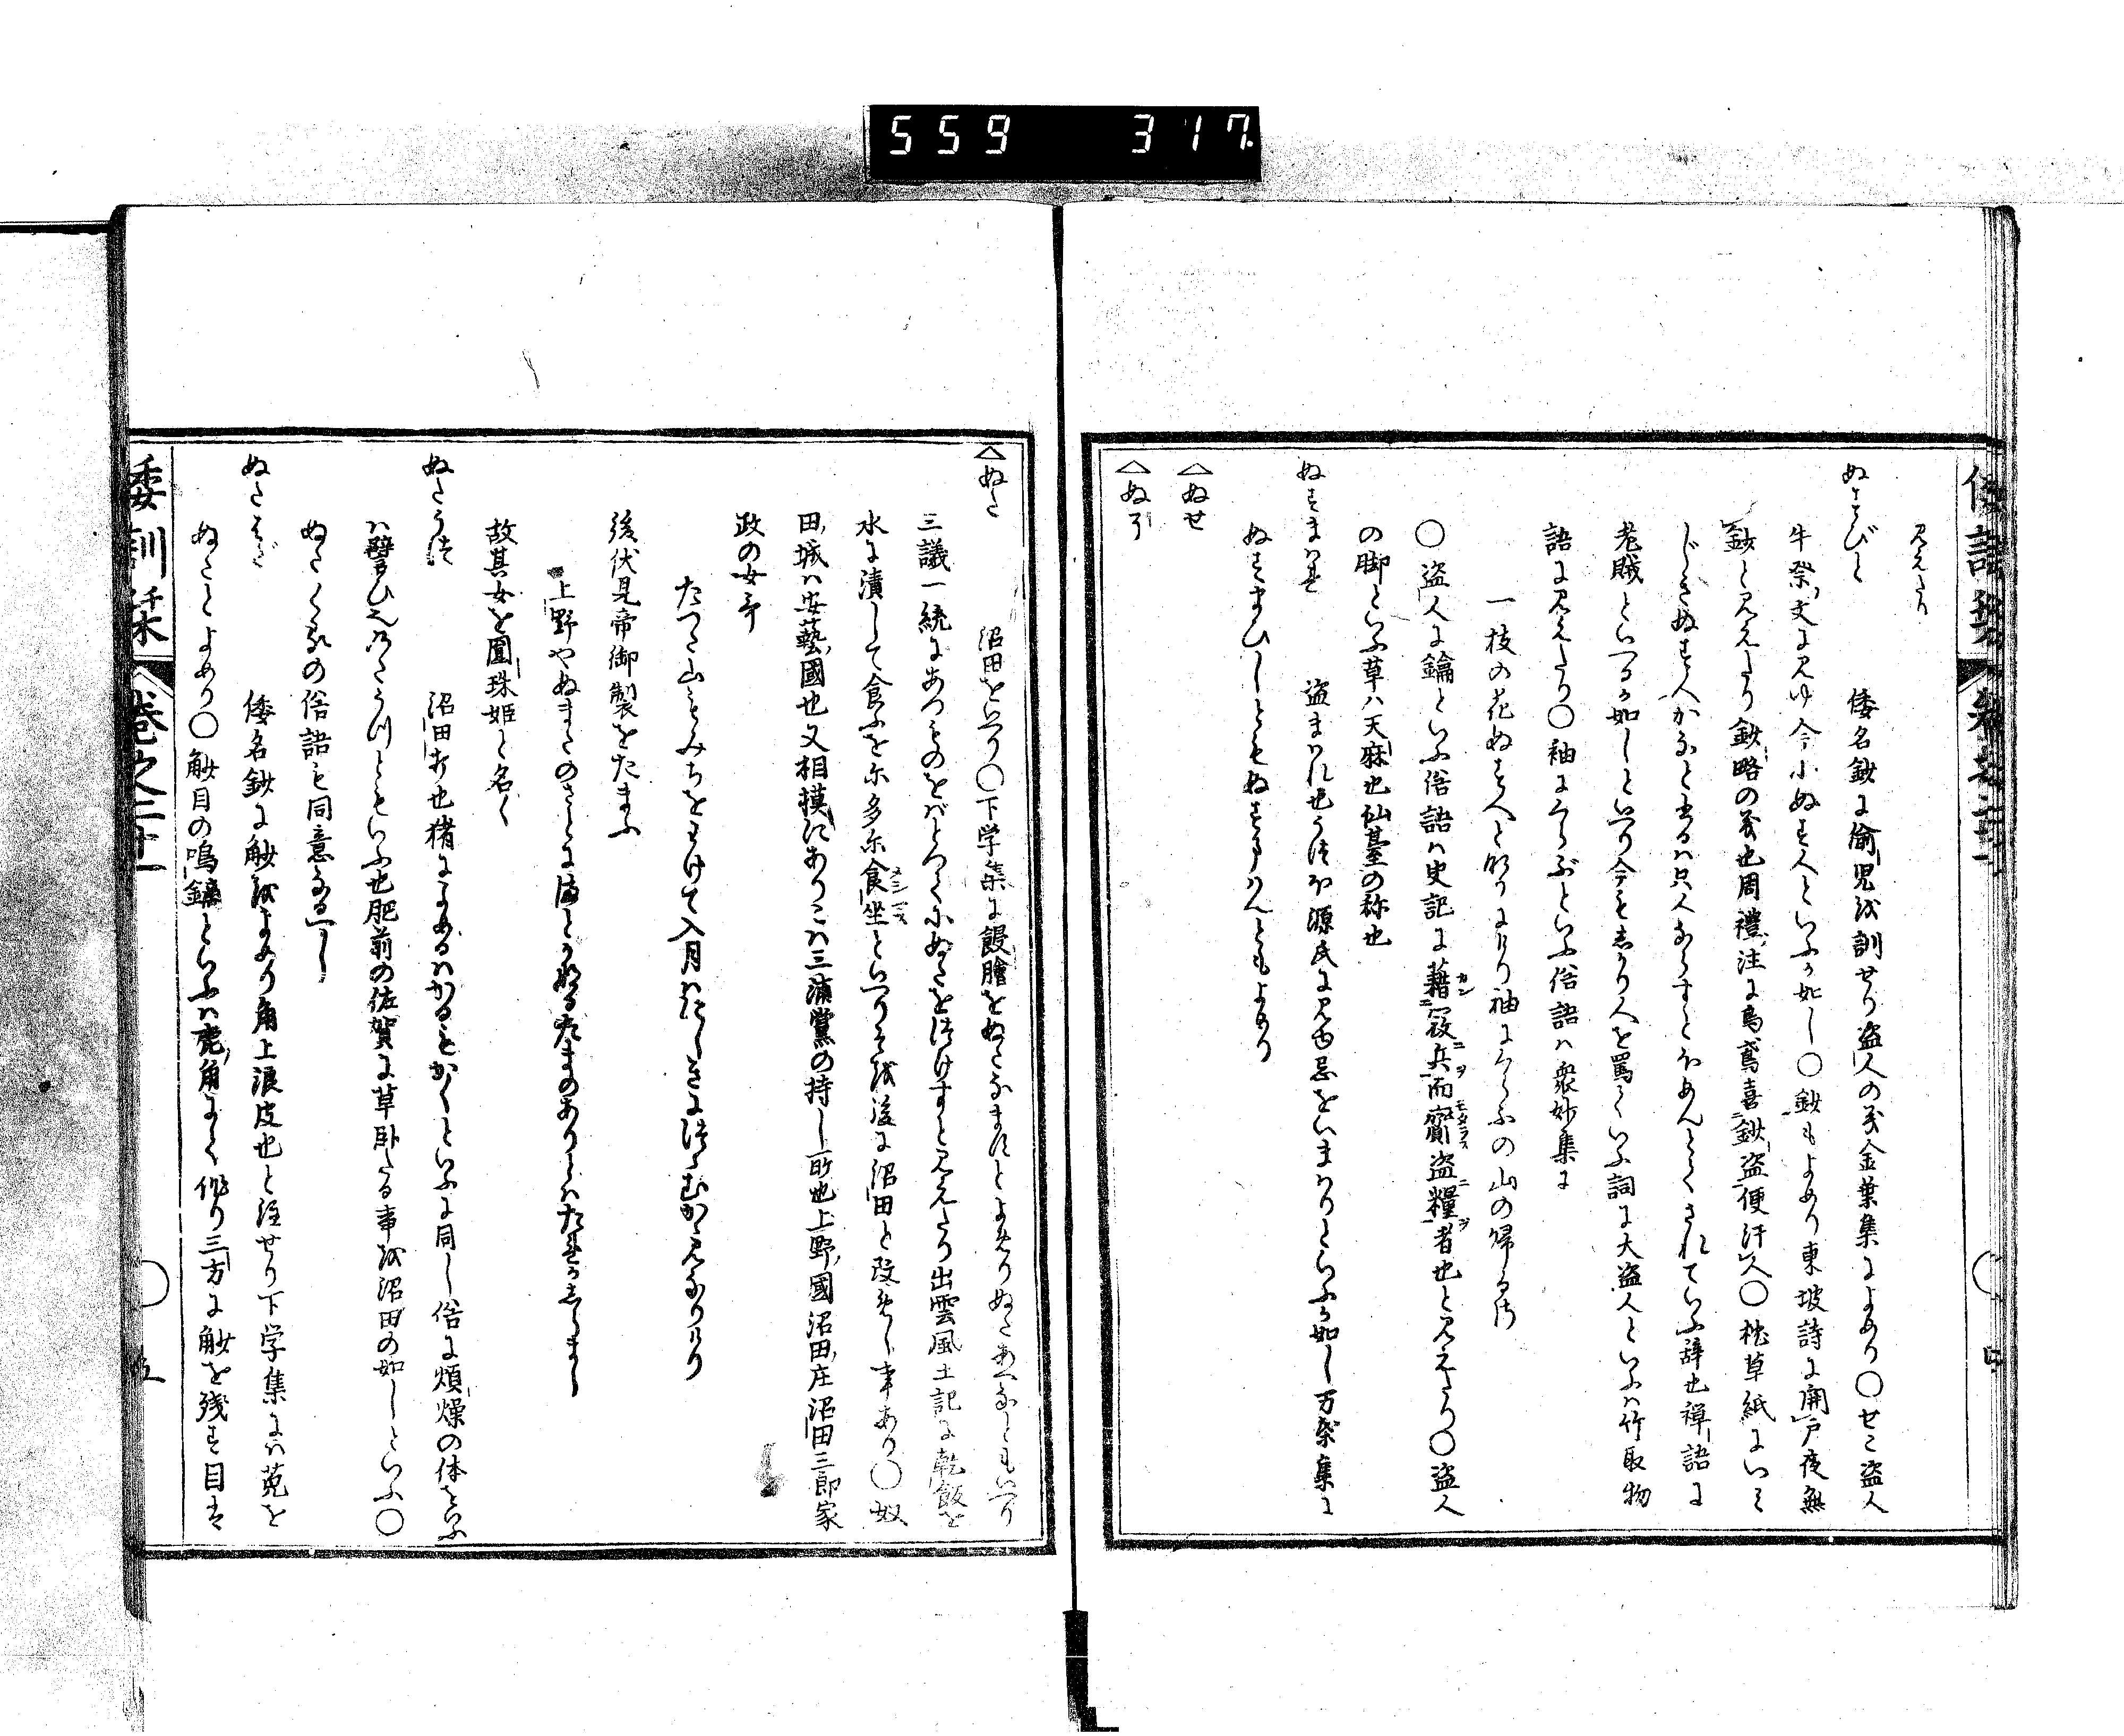 559 317
見えたり
ぬすびと 倭名鈔に偸兒を訓せり盗人の義金葉集によめり〇せこ盗人
牛祭文に見ゆ今小ぬす人といふか如し〇鈔もよめり東坡詩に開戸夜無
鈔と見えたり鈔略の義也周禮注に烏鳶喜鈔盗便汗人〇枕草紙にいみ
じきぬす人かなと書るハ只人ならすとほめんとてされていふ辞也禅語に
老賊といへるか如しといへり今もしかり人を罵ていふ詞に大盗人といふハ竹取物
語に見えたり〇袖にならぶといふ俗語ハ衆妙集に
一枝の花ぬす人と成にけり袖にならふの山の帰るさ
〇盗人に鑰といふ俗語ハ史記に藉寇兵而齎盗糧者也と見えたり〇盗人
の脚といふ草ハ天麻也仙臺の称也
ぬすまハれ 盗まはれ也うつほ源氏に見ゆ忌をいまハりといふか如し万葉集に
ぬすまひしともぬすまハんともよめり
△ぬせ
△ぬそ
倭訓栞 巻之二十一 四
△ぬた 沼田をいへり〇下学集に饅膾をぬたなますとよめりぬたあへなともいへり
三議一統にあつものをばとろくにぬたをつけすと見えたり出雲風土記に乾飯を
水に漬して食ふを尓多尓食坐といへりそを後に沼田と改めし事あり〇奴
田城ハ安藝國也又相摸にありこハ三浦黨の持し所也上野國沼田庄沼田三郎家
政の女哥
たつた山もみちをわけて入月ハにしきにつゝむかゝみなりけり
後伏見帝御製をたまふ
上野やぬまたのさとに満とかなるたまのありとハたれかしらまし
故其女を圓珠姫と名く
ぬたうつ 沼田打也猪によめるハかるもかくといふに同し俗に煩燥の体をいふ
ハ譬ひ也のたうつともいふ也肥前の佐賀に草臥たる事を沼田の如しといふ〇
ぬたくるの俗語も同意なるへし
ぬたはだ 倭名鈔に觘をよめり角上浪皮也と注せり下学集にハ菟を
ぬたとよめり〇觘目の鳴鏑といふハ鹿角にて作り三方に觘を残す目は
倭訓栞 巻之二十一 五